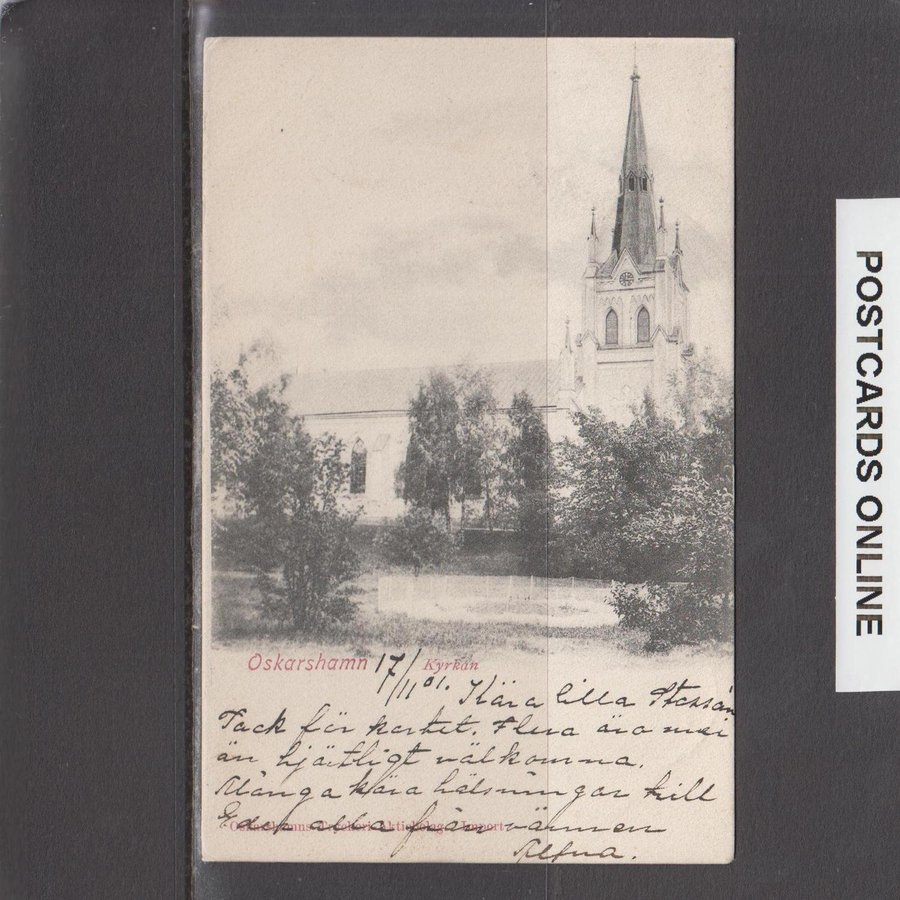 Oskarshamn 17/11 01. Kyrkan
Kära lilla
Tack för kortet. Flera äro mer
än hjärtligt välkomna.
Många kära hälsningar till
Eder alla från vännen
Oskarshamns Tryckeri-Aktiebolag Import
POSTCARDS ONLINE